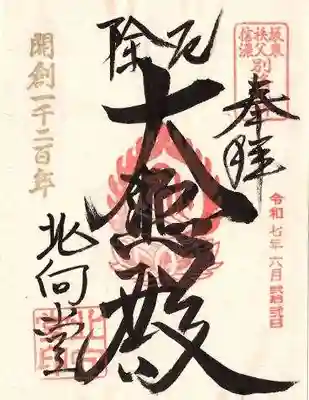 坂東
秩父
信濃
別
奉拝
令和七年六月弐拾弐日
厄除
大悲殿
開創一千二百年
北向堂